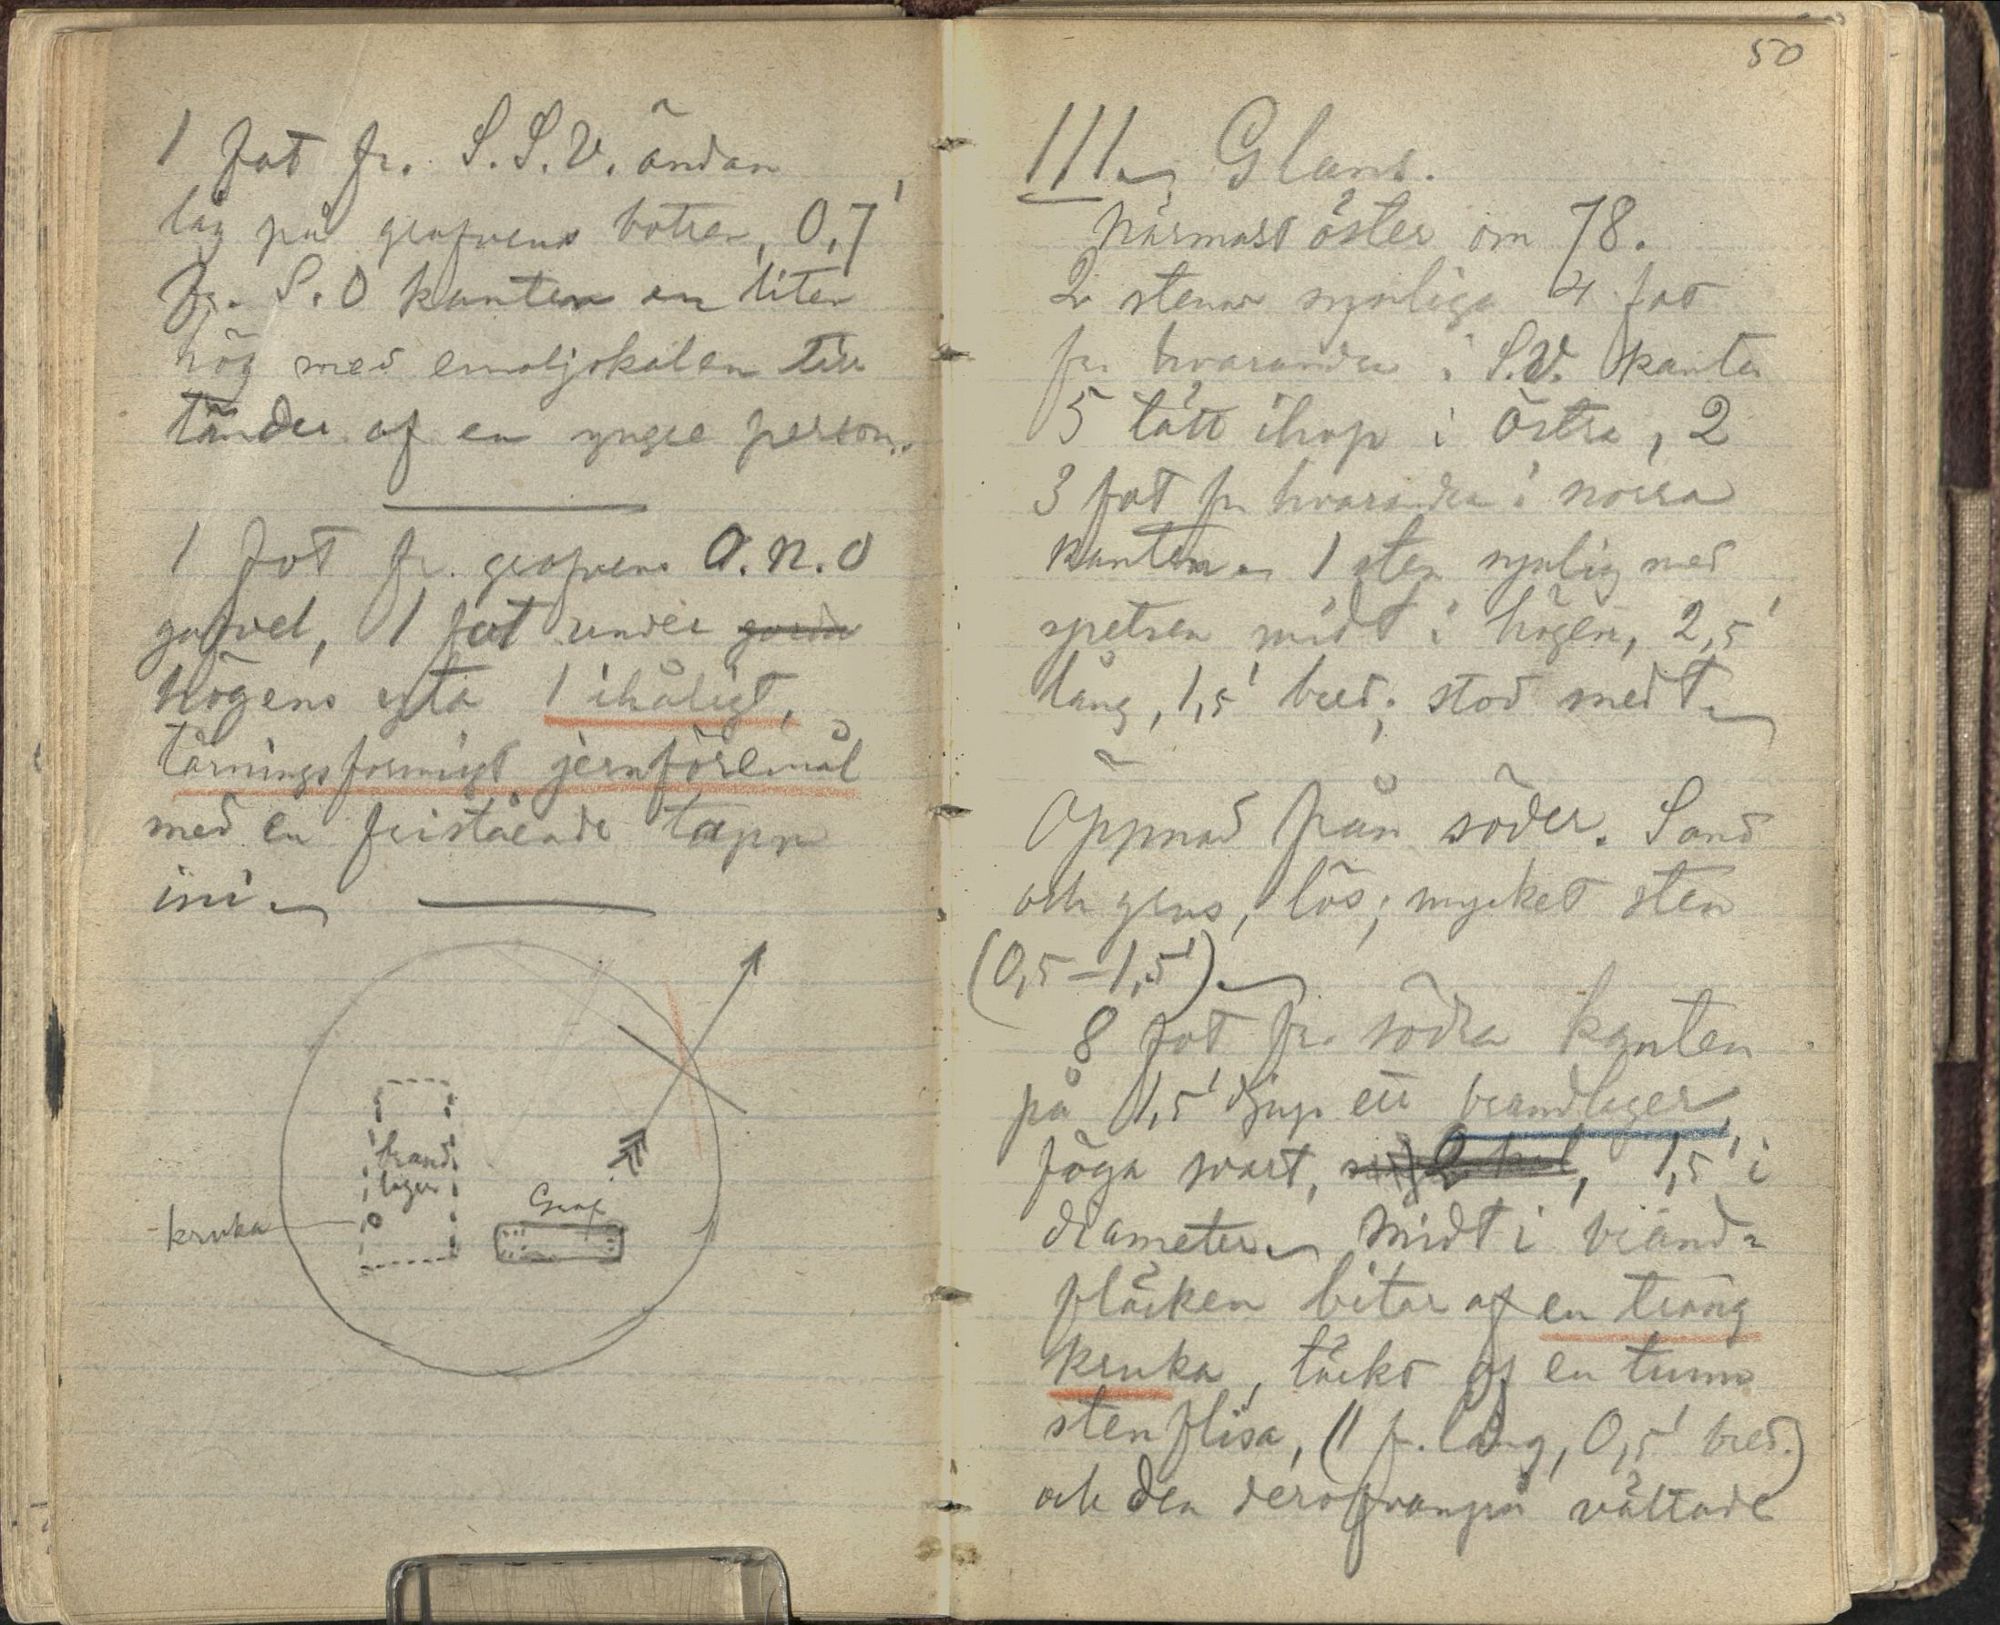 1 fot fr. S.S.V. ändan
låg på grafvens botten, 0,7'
fr. S.O kanten en liten
hög med emaljskalen till
tänder af en yngre person.
1 fot fr. grafvens O.N.O
gafvel, 1 fot under
högens yta 1 ihåligt,
tärningsformigt jernföremål
med en fristående tapp
ini.
brand
lager
kruka
Graf
50
111. Glans.
Närmast öster om 78.
2 stenar synliga 4 fot
fr. hvarandra i S.V. kanten
5 tätt ihop i Östra, 2
3 fot fr hvarandra i norra
kanten. 1 sten synlig med
spetsen midt i högen, 2,5'
lång, 1,5' bred; stod med t.
Öppnad från söder. Sand
och grus, lös; mycket sten
(0,5–1,5').
8 fot fr. södra kanten
på 1,5' djup ett brandlager,
föga svart, 1,5' i
diameter. Midt i brand-
fläcken bitar af en trång
kruka, täckt af en tunn
stenflisa, (1 f. lång, 0,5' bred.)
och den derofvanpå vältade